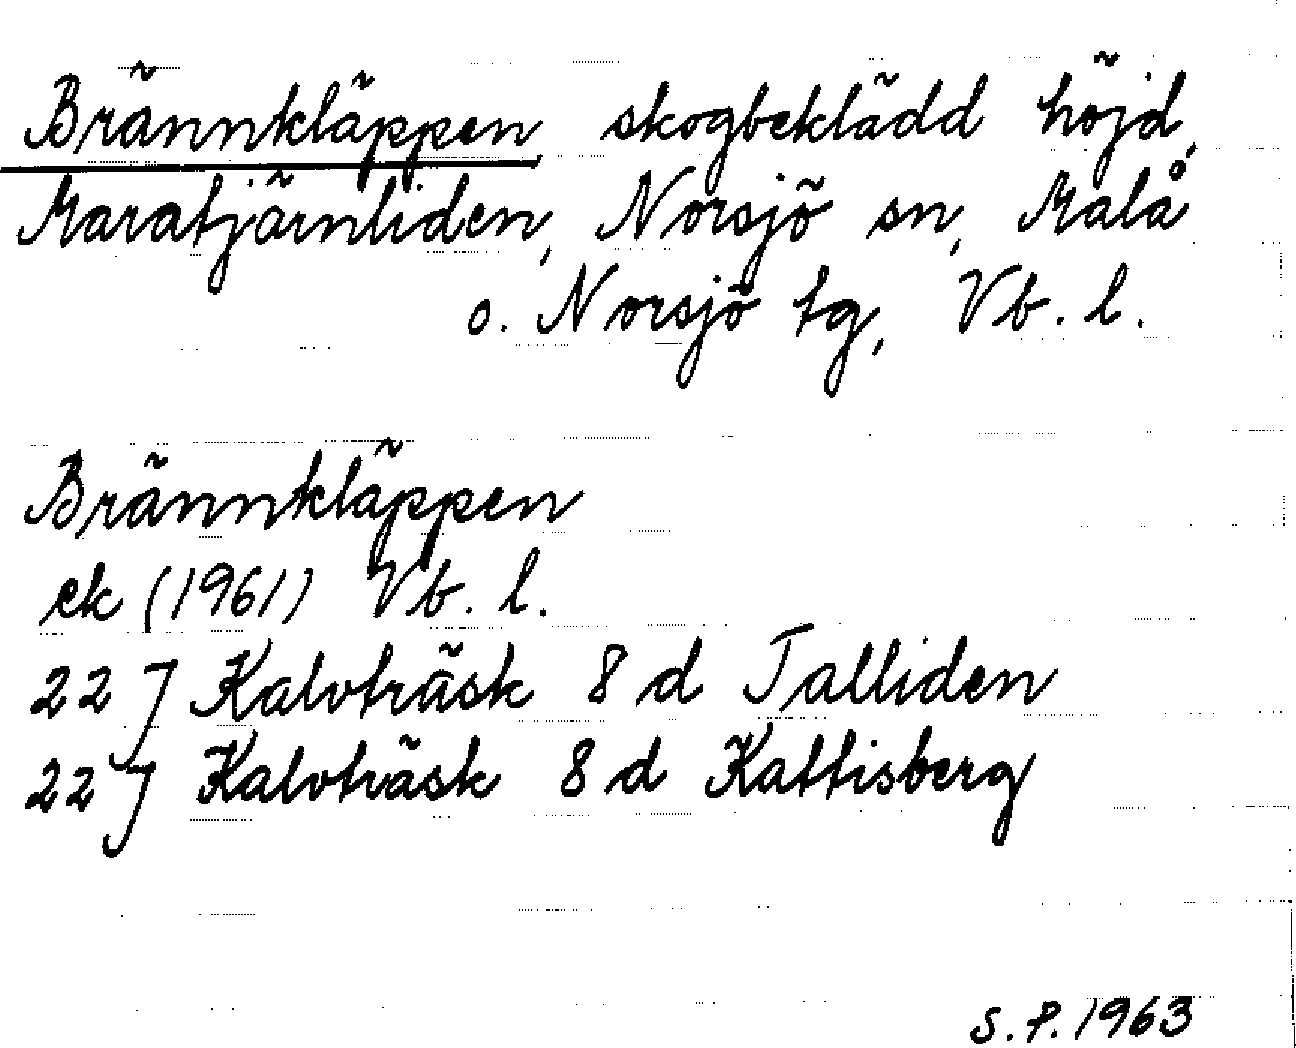 Brännkläppen, skogbeklädd höjd,
Maratjärnliden, Norsjö sn, Malå
o. Norsjö tg, Vb. l.
Brännkläppen
ek (1961) Vb. l.
22 J Kalvträsk 8 d Talliden
22 J Kalvträsk 8 d Kattisberg
S.P. 1963